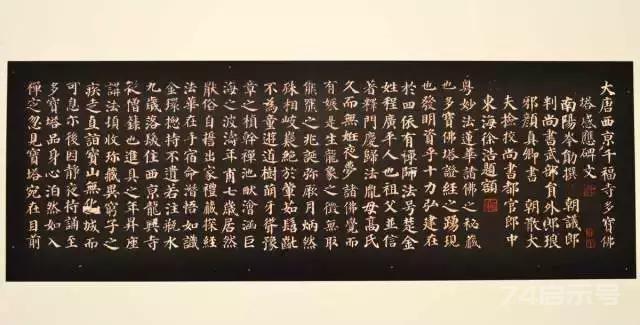 大唐西京千福寺多寶佛
塔感應碑文
南陽岑勛撰 朝議郎
判尚書武部員外郎琅
邪顏真卿書 朝散大
夫撿挍尚書都官郎中
東海徐浩題額
粵妙法蓮華諸佛之秘藏
也多寶佛塔證經之踴現
也發明資乎十力弘建在
於四依有禪師法号楚金
姓程廣平人也祖父並信
著釋門慶歸法胤母高氏
久而無姙夜夢諸佛覺而
有娠是生龍象之徵無取
熊羆之兆誕弥厥月炳然
殊相岐嶷絕於葷茹髫齔
不為童遊道樹萌牙聳豫
章之楨幹禪池畎澮涵巨
海之波濤年甫七歲居然
厭俗自誓出家禮藏探經
法華在手宿命潛悟如識
金環揔持不遺若注瓶水
九歲落髮住西京龍興寺
從僧籙也進具之年昇座
講法頓收珎藏異窮子之
疾走直詣寶山無化城而
可息尔後因靜夜持誦至
多寶塔品身心泊然如入
禪定忽見寶塔宛在目前
74启示号